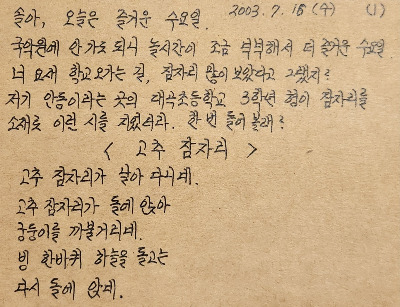 솔아, 오늘은 즐거운 수요일. 2003. 7. 16 (수) (1)
국악원에 안 가도 되니 놀시간이 조금 넉넉해서 더 즐거운 수요일.
너 요새 학교 오가는 길, 잠자리 많이 보았다고 그랬지?
저기 안동이라는 곳의 대곡초등학교 3학년 형이 잠자리를
소재로 이런 시를 지었더라. 한 번 들어 볼래?
< 고추 잠자리 >
고추 잠자리가 날아 다니네.
고추 잠자리가 돌에 앉아
궁둥이를 까불거리네.
빙 한바퀴 하늘을 돌고는
다시 돌에 앉네.